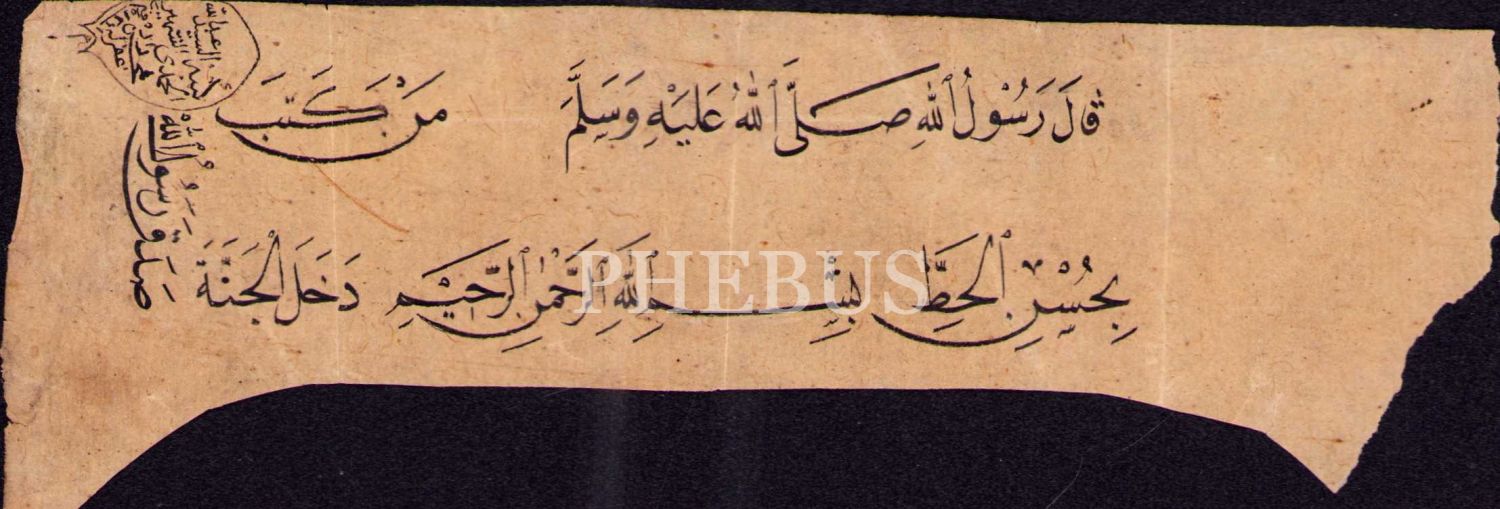 قَالَ رَسُوْلُ ٱللهِ صَلَّى ٱللهُ عَلَيْهِ وَسَلَّمَ مَنْ كَتَبَ
بِحُسْنِ ٱلْخَطِّ بِسْمِ ٱللهِ ٱلرَّحْمٰنِ ٱلرَّحِيْمِ دَخَلَ الْجَنَّةَ
صَدَقَ رَسُوْلُ اللهِ
PHEBUS